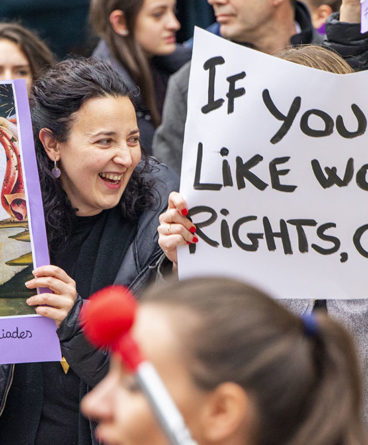 IF YOU
LIKE WO
RIGHTS, C
iades